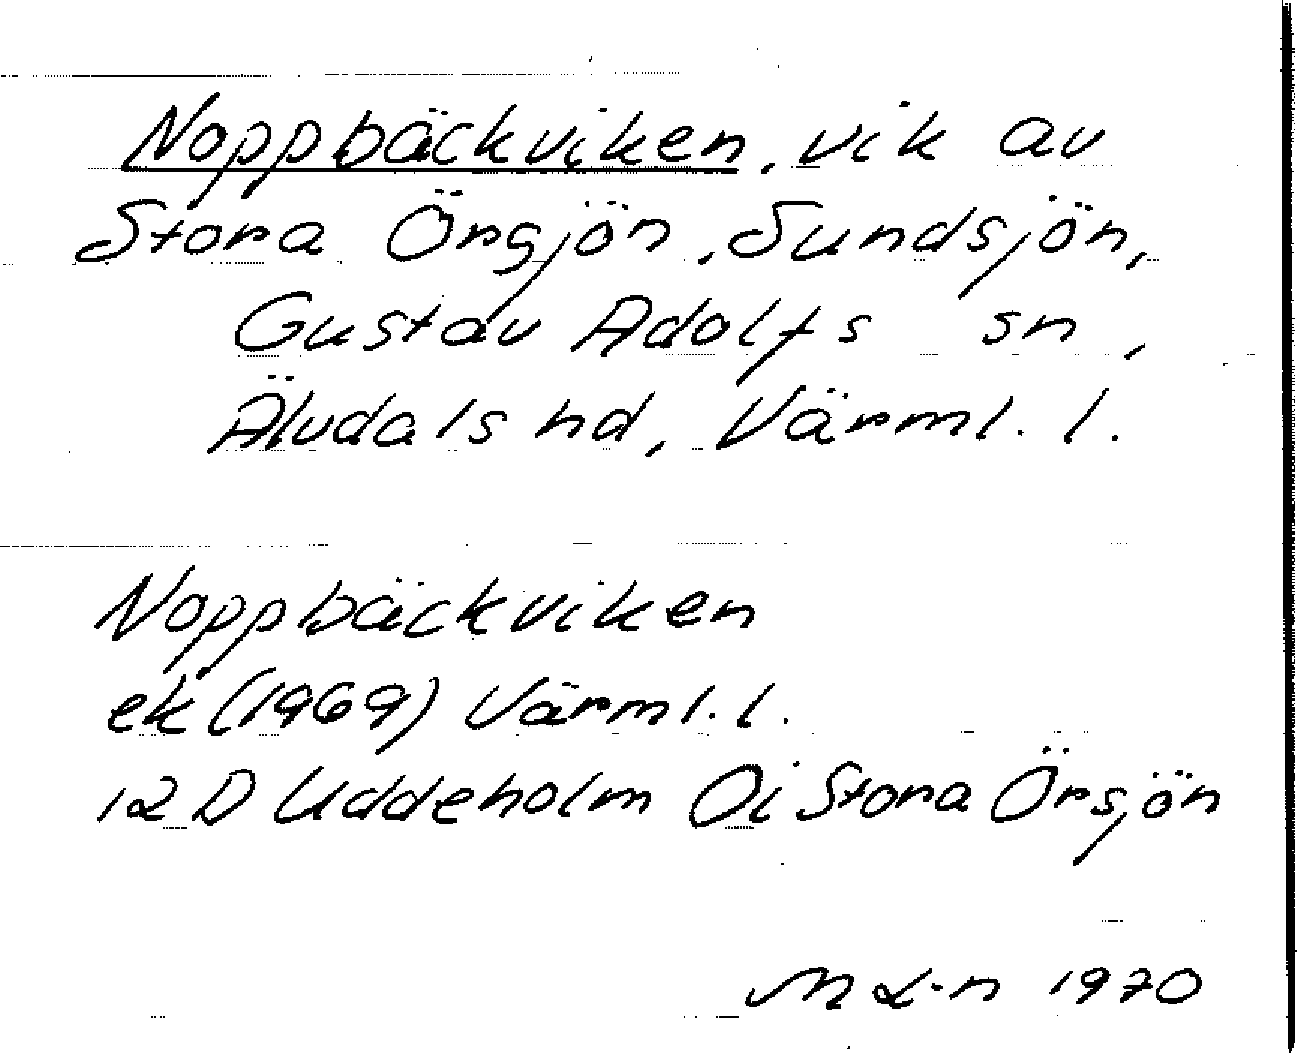 Noppbäckviken, vik av
Stora Örsjön, Sundsjön,
Gustav Adolfs sn,
Älvdals hd, Värml. l.
Noppbäckviken
ek (1969) Värml. l.
12 D Uddeholm Öi Stora Örsjön
M L-n 1970